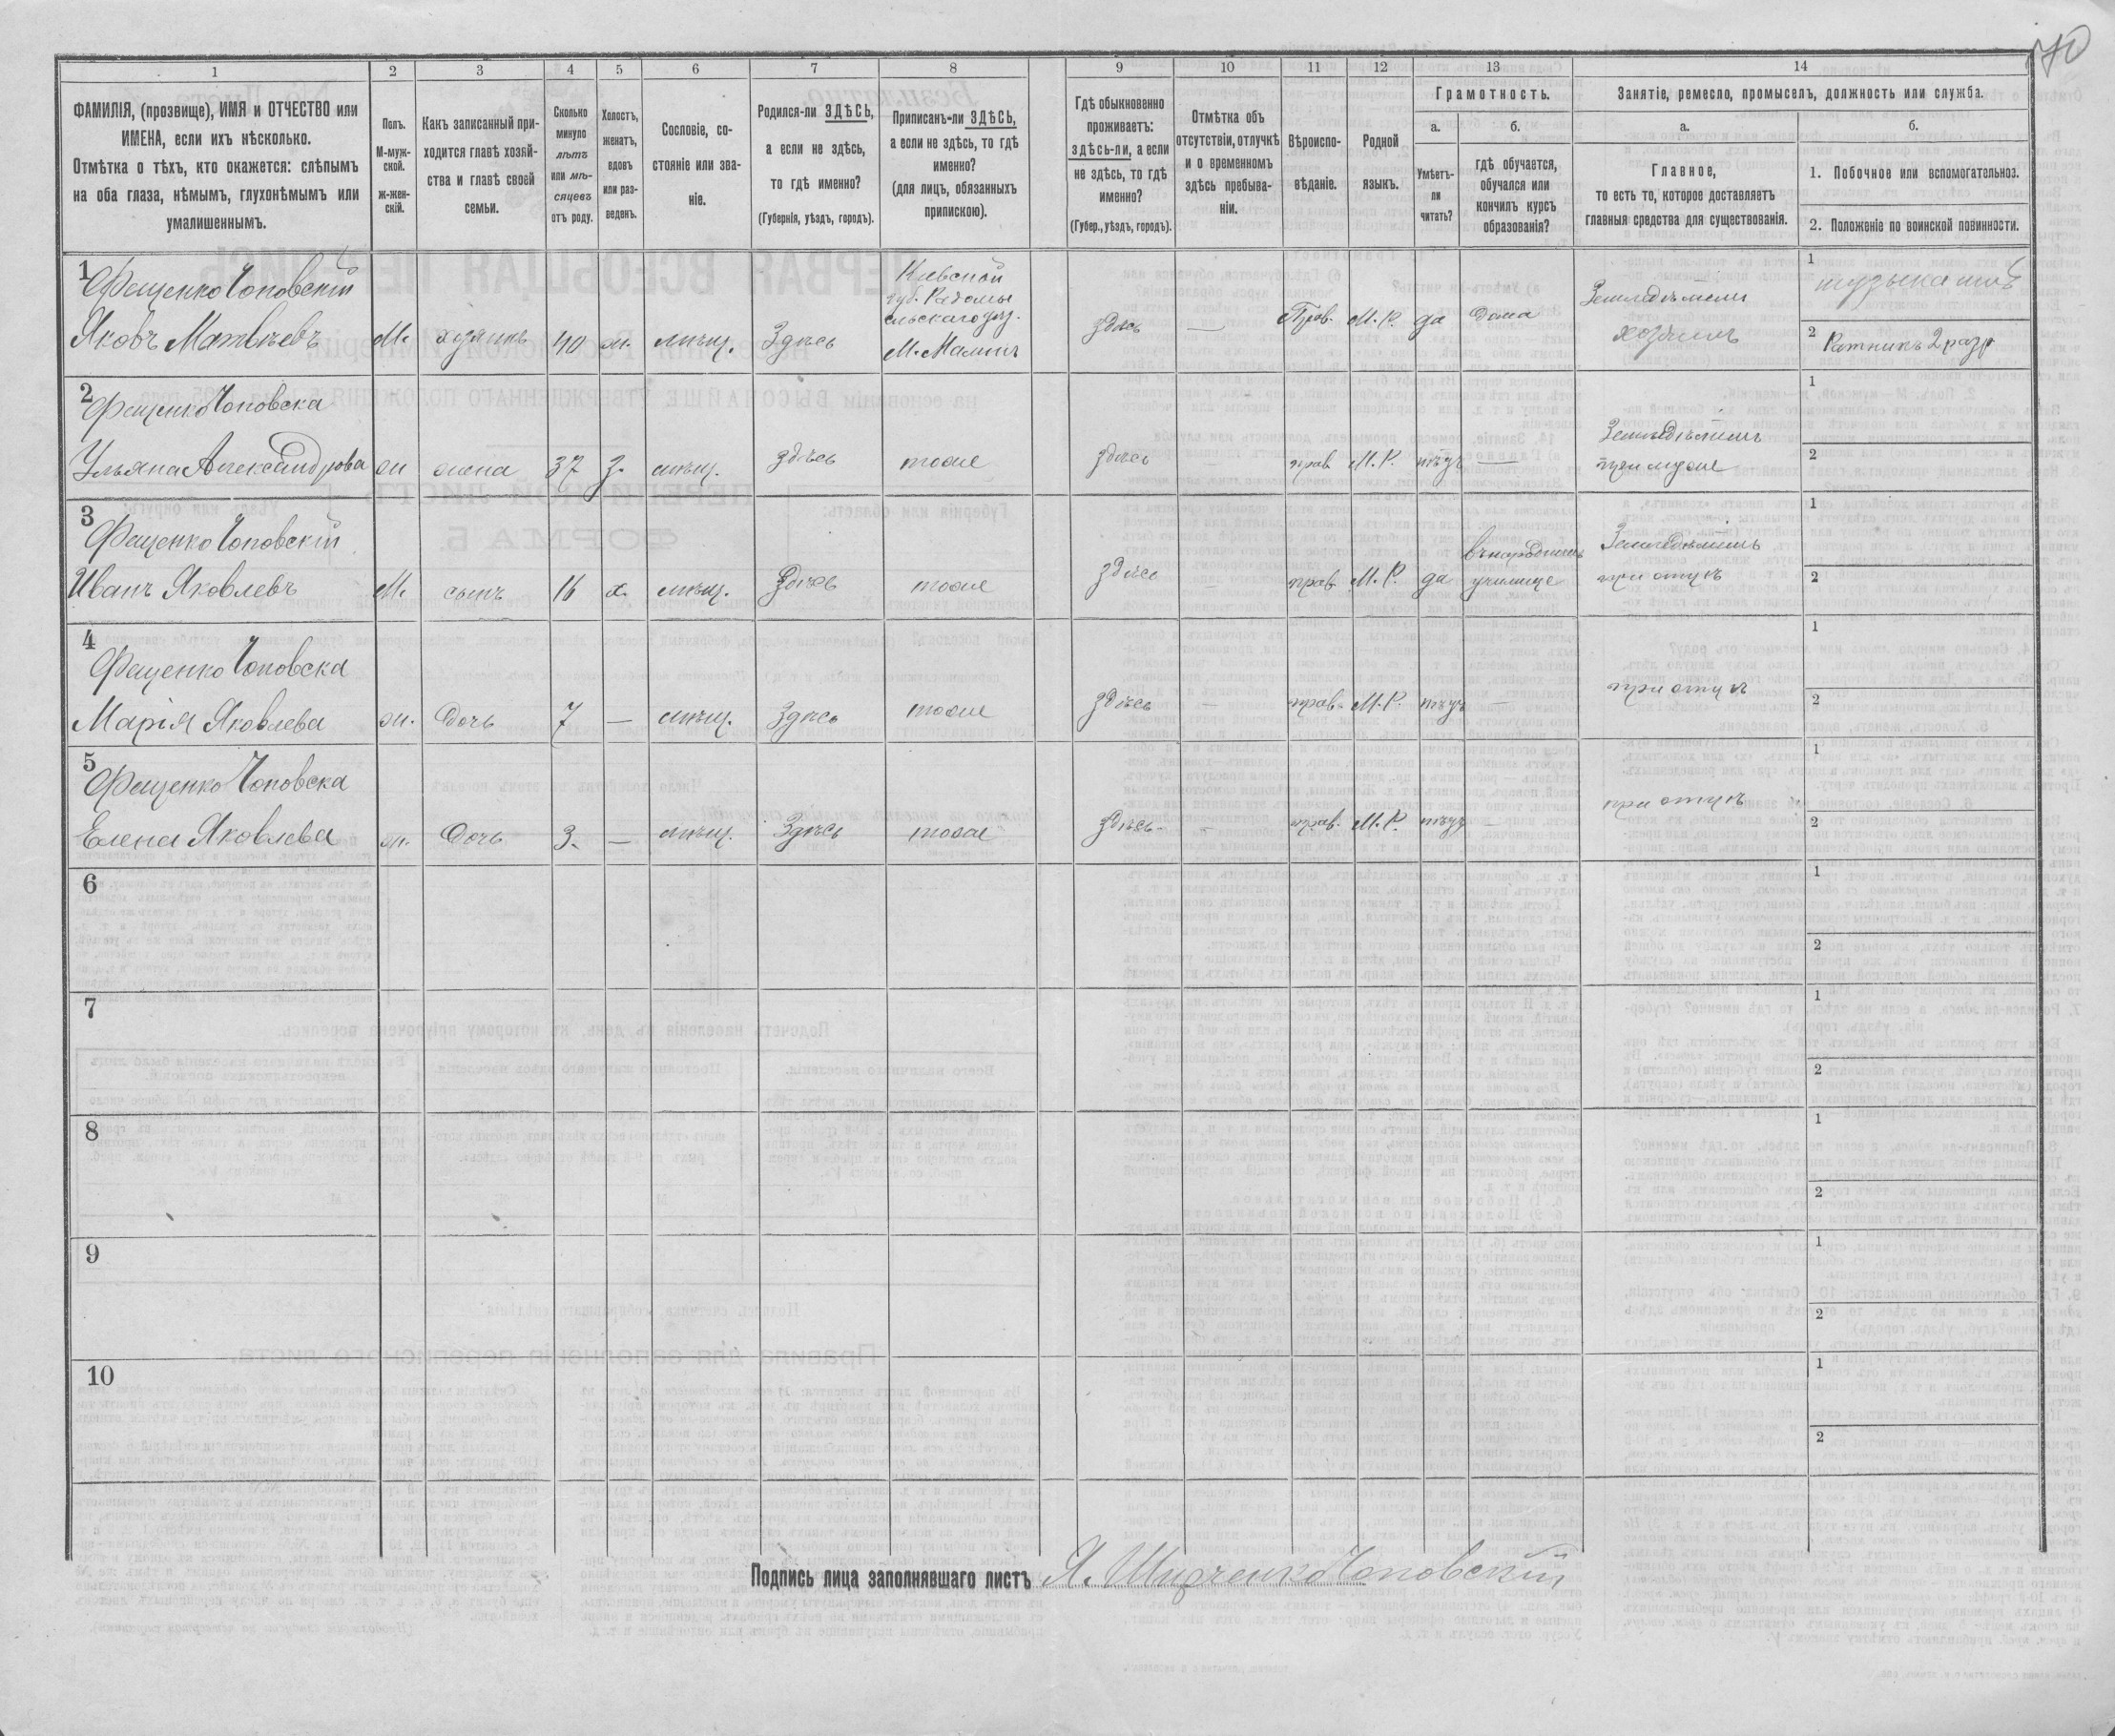 70
1 2 3 4 5 6 7 8 9 10 11 12 13 14
ФАМИЛІЯ, (прозвище), ИМЯ и ОТЧЕСТВО или
ИМЕНА, если ихъ нѣсколько.
Отмѣтка о тѣхъ, кто окажется: слѣпымъ
на оба глаза, нѣмымъ, глухонѣмымъ или
умалишеннымъ.
Полъ.
М-муж-
ской.
ж-жен-
скій.
Какъ записанный при-
ходится главѣ хозяй-
ства и главѣ своей
семьи.
Сколько
минуло
лѣтъ
или мѣ-
сяцевъ
отъ роду.
Холостъ,
женатъ,
вдовъ
или раз-
веденъ.
Сословіе, со-
стояніе или зва-
ніе.
Родился-ли ЗДѢСЬ,
а если не здѣсь,
то гдѣ именно?
(Губернія, уѣздъ, городъ).
Приписанъ-ли ЗДѢСЬ,
а если не здѣсь, то гдѣ
именно?
(для лицъ, обязанныхъ
припискою).
Гдѣ обыкновенно
проживаетъ:
здѣсь-ли, а если
не здѣсь, то гдѣ
именно?
(Губер., уѣздъ, городъ).
Отмѣтка объ
отсутствіи, отлучкѣ
и о временномъ
здѣсь пребыва-
ніи.
Вѣроиспо-
вѣданіе.
Родной
языкъ.
Грамотность.
а.
Умѣетъ-
ли
читать?
б.
гдѣ обучается,
обучался или
кончилъ курсъ
образованія?
Занятіе, ремесло, промыселъ, должность или служба.
а.
Главное,
то есть то, которое доставляетъ
главныя средства для существованія.
б.
1. Побочное или вспомогательное.
2. Положеніе по воинской повинности.
1
Фещенко Чоповскій
Яковъ Матвѣевъ
М.
хозяинъ
40
ж.
мѣщ.
Здѣсь
Кіевской
губ. Радомы
сльскаго уѣз.
М. Малинъ
здѣсь
—
Прав.
М. Р.
да
дома
хозяинъ
1
2 Ратникъ 2 разр
2
Фещенко Чоповска
Ульяна Александрова
ж
жена
37
з.
мѣщ.
здѣсь
тоже
здѣсь
-
прав
М. Р.
нѣтъ
—
при мужѣ
1
2
3
Фещенко Чоповскій
Иванъ Яковлевъ
М.
сынъ
16
х.
мѣщ.
Здѣсь
тоже
здѣсь
-
прав
М. Р.
да
училище
при отцѣ
1
2
4
Фещенко Чоповска
Марія Яковлева
ж.
дочь
7
—
мѣщ.
Здѣсь
тоже
здѣсь
-
прав.
М. Р.
нѣтъ
-
при отцѣ
1
2
5
Фещенко Чоповска
Елена Яковлева
ж.
дочь
3.
—
мѣщ.
Здѣсь
тоже
здѣсь
-
прав.
М. Р.
нѣтъ
-
при отцѣ
1
2
6
1
2
7
1
2
8
1
2
9
1
2
10
1
2
Подпись лица заполнявшаго листъ Я. Чоповскій